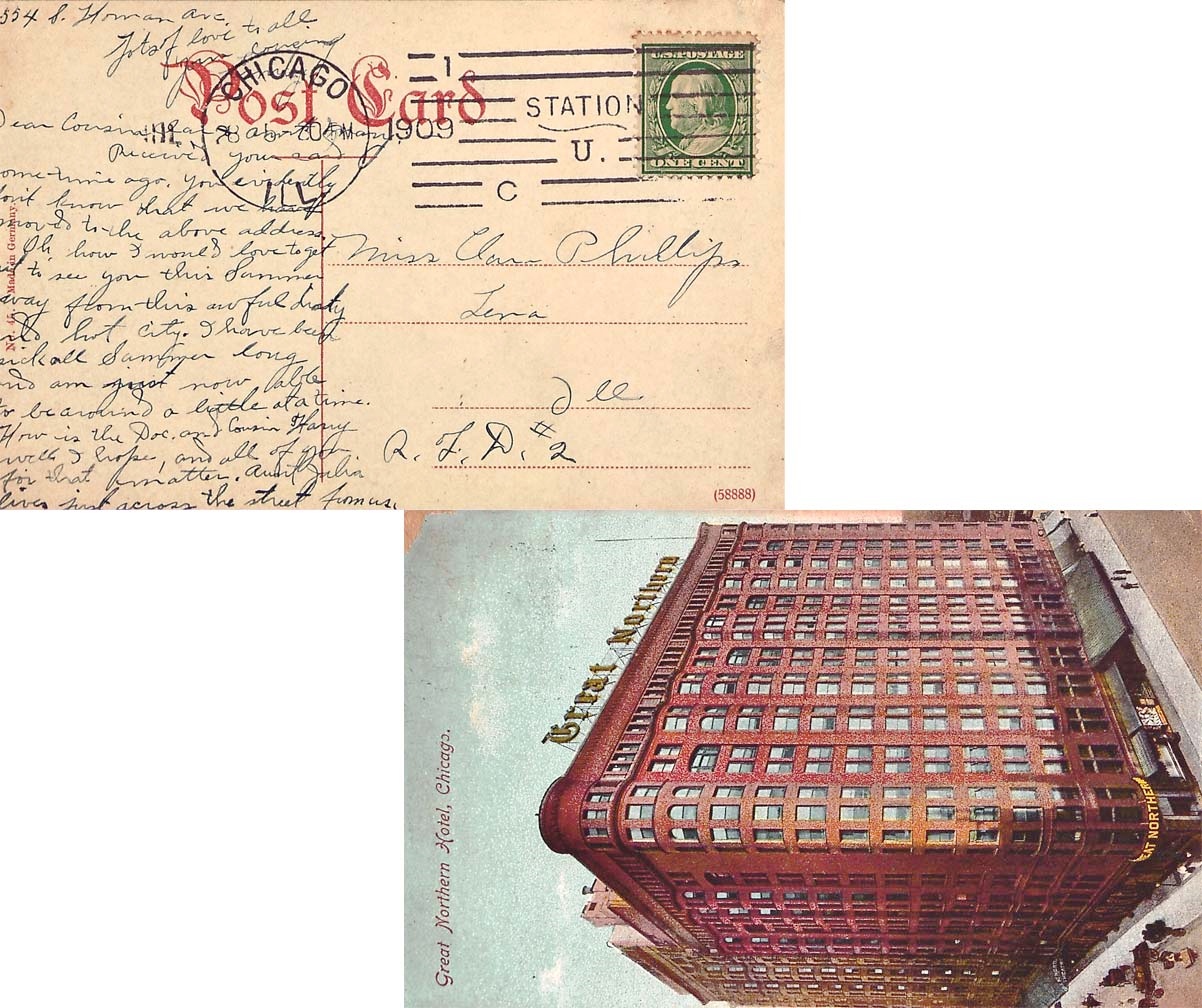 554 S. Homan Ave.
Lots of love to all
from cousin
Post Card
CHICAGO
JUL 28 5 30 PM 1909
ILL
1
STATION
U.
C
U.S. POSTAGE
ONE CENT
Dear Cousin
Received your card
ome-time ago. You evidently
don't know that we have
moved to the above address.
Oh how I would love to get
to see you this Summer
away from this awful dirty
and hot city. I have been
sick all Summer long
and am just now able
to be around a little at a time.
How is the Doc. and Cousin Harry
well I hope, and all of you
for that matter. Aunt Julia
lives just across the street from us.
Made in Germany.
Miss Clara Phillips
Lena
Ill
R. F. D. #2
(58888)
Great Northern Hotel, Chicago.
Great Northern
EAT NORTHERN